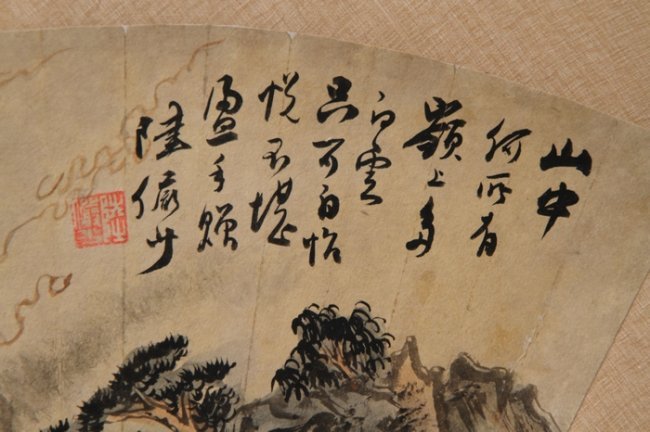 山中
何所有
嶺上多
白雲
只可自怡
悅不堪
盈手贈
陸儼少